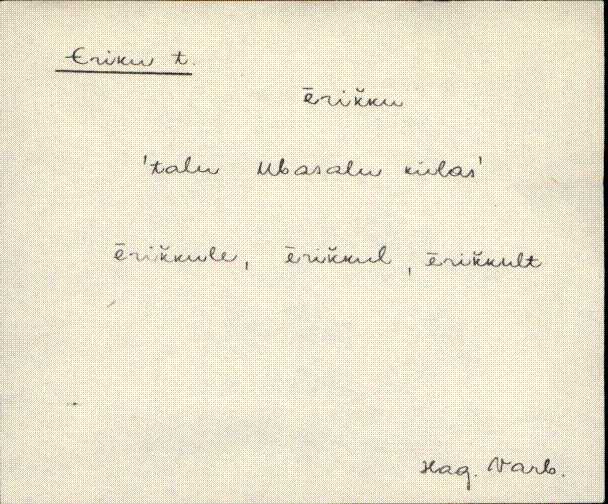 Eriku t.
ērik̆ku
'talu Ubasalu külas'
ērik̆kule, ērik̆kul, ērik̆kult
Hag. Varb.